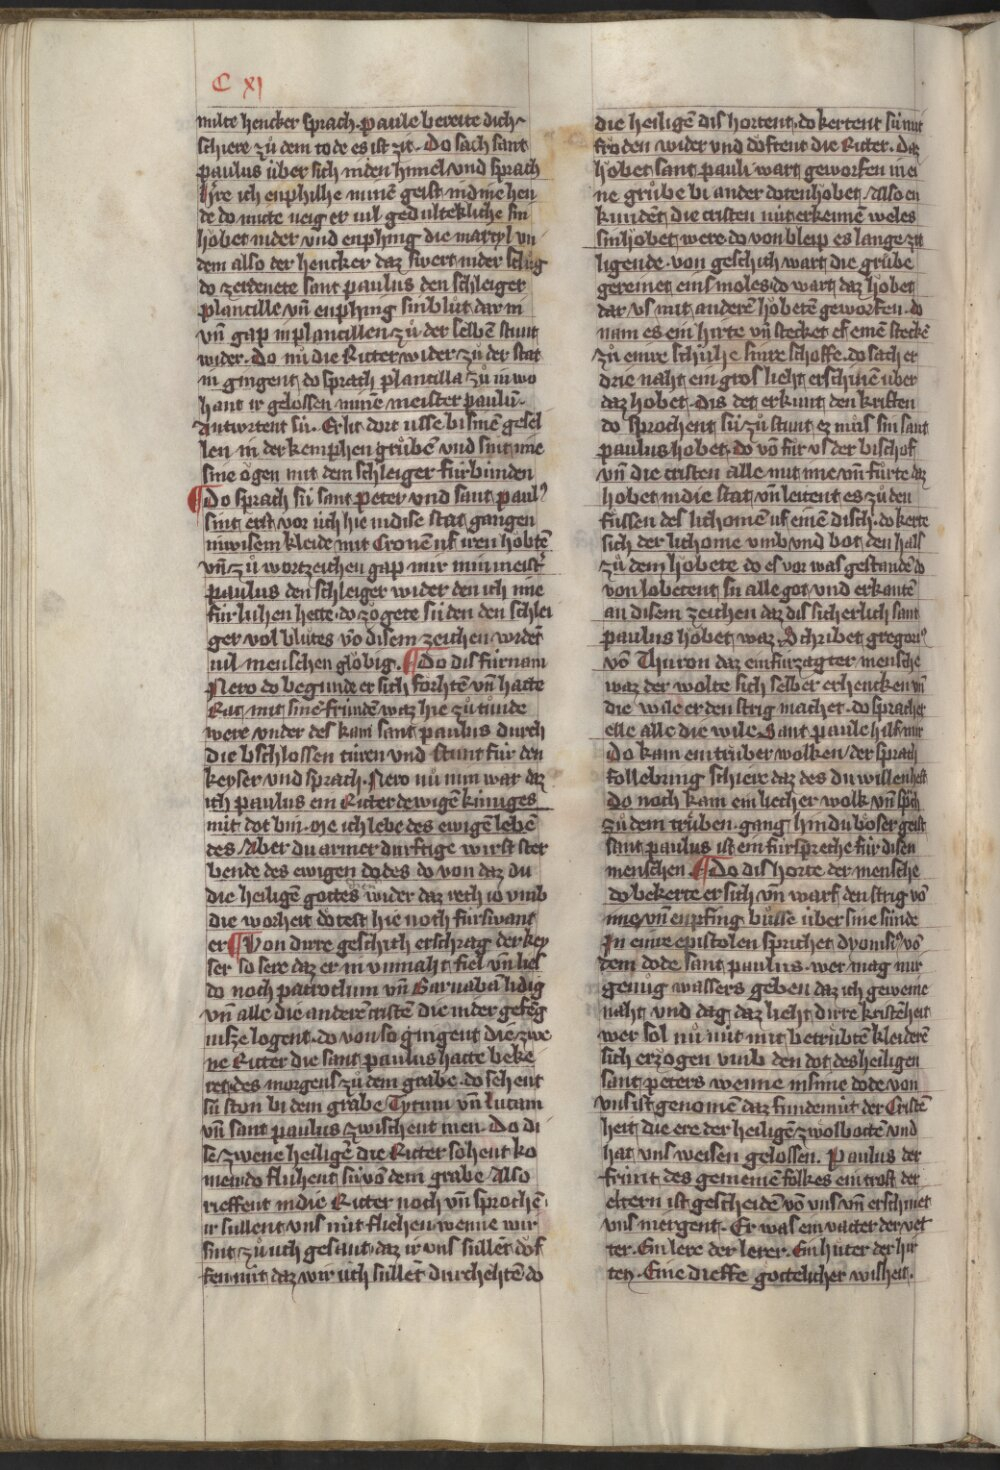 C XI
milte hencker sprach. paule bereite dich
schiere zů dem tode es ist zit. Do sach sant
paulus über sich in den himel und sprach
h̄re ich enphilhe minē geist in dine hen
de do mitte neig er vil gedulteklichē sin
hŏbet nider und enphing die martyl vn
dem also der hencker daz swert nider schlůg
do zerdenete sant paulus den schleiger
plantille vn̄ enphing sin blůt dar in
vn̄ gap in plantillen zů der selbē stunt
wider. Do nů die Ritter wider zů der stat
in gingent do sprach plantilla zů in wo
hant ir gelossen minē meister paulū.
Antwrtent sü. Er lit dort usse bi sinē gesel
len in der kemphen grůbē vnd sint ime
sine ŏgen mit dem schleiger fürbunden
¶Do sprach sü sant peter vnd sant paulꝰ
sint erst vor üch hie in dise stat gangen
in wisem kleide mit Cronē uf iren hŏbtē
vn̄ zů wortzeichen gap mir min meist̄
paulus den schleiger wider den ich ime
fürluhen hette. do zŏgete sü den den schlei
ger vol blůtes vō disem zeichen wrdēt
vil menschen glŏbig. ¶Do dis fürnam
Nero do begunde er sich fŏrhtē vn̄ hatte
Rat mit sinē fründē waz hie zů tůnde
were vnder des kam sant paulus durch
die bschlossen türen vnd stunt für den
keyser vnd sprach. Nero nů nim war daz
ich paulus ein Ritter dewigē küniges
nüt dot bin. me ich lebe des ewigē lebē
des Aber du armer dürftige wirst ster
bende des ewigen dodes do von daz du
die heiligē gottes wider daz rech io vmb
die worheit dŏtest hie noch fürswant
er ¶Von dirre geschiht erschrag der key
ser so sere daz er in vnmaht fiel vn̄ lies
do noch patroclum vn̄ Barnabā lidig
vn̄ alle die anderē cristē die in der gefēg
nisze logent. do von so gingent die zwe
ne Ritter die sant paulus hatte beke
ret des morgens zů dem grabe. do sehent
sü ston bi dem grabe Tytum vn̄ Lucam
vn̄ sant paulus zwischent inen. Do di
se zwene heiligē die Ritter sŏhent ko
men do fluhent sü vō dem grabe Also
rieffent in die Ritter noch vn̄ sprochē
ir süllent vns nüt fliehen wenne wir
sint zů üch gesant. daz ir vns süllēt dŏf
fen nüt daz wir üch süllēt durchehtē do
die heiligē dis hortent. do kertent sü mit
frŏden wider vnd dŏftent die Ritter. Daz
hŏbet sant pauli wart geworfen in ei
ne grůbe bi ander dotenhŏbet Also en
kundēt die cristen nüt erkennē weles
sin hŏbet were do von bleip es lange zit
ligende. von geschiht wart die grůbe
gereinet eins moles do wart daz hŏbet
dar vs mit anderē hŏbetē geworfen. do
nam es ein hirte vn̄ stecket ef einē steckē
zů einre schühe sinre schoffe. do sach er
drie naht ein gros lieht erschinē über
daz hŏbet. Dis det er kunt den kristen
do sprochent sü zů stunt ez můs sin sant
paulus hŏbet. do vō für vs der bischof
vn̄ die cristen alle mit ime vn̄ fůrte daz
hŏbet in die stat vn̄ leitent es zů den
füssen des lichomē uf einē disch. do kerte
sich der lichome vmb vnd bot den hals
zů dem hŏbete do es vor was gestandē do
von lobetent sü alle got vnd erkantē
an disem zeichen daz dis sicherlich sant
paulus hŏbet waz. Schribet gregoriꝰ
vō Thuron daz ein fürzagter mensche
waz der wolte sich selber erhencken vn̄
die wile er den strig machet. do sprach er
elle alle die wile Sant paule hilf mir
Do kam ein trüber wolken der sprach
follebring schiere daz des du willen hest
Do noch kam ein liechter wolk vn̄ sp̄ch
zů dem trüben. gang hin du bŏser geist
sant paulus ist ein fürspreche für disen
menschen. ¶Do dis horte der mensche
do bekerte er sich vn̄ warf den strig vō
ime vn̄ enpfing bůsse über sine sünde
In einre epistolen sprichet dyonisiꝰ vō
dem dode sant paulus. wer mag mir
genůg wassers geben daz ich geweine
naht vnd dag daz lieht dirre kristēheit
wer sol nů nüt mit betrübtē kleiderē
sich erzŏgen vmb den dot des heiligen
sant peters wenne in sinne dode von
vns ist genomē daz fundemüt der Cristē
heit die ere der heiligē zwŏlbottē vnd
hat vns weisen gelossen. Paulus der
frünt des gemeinē folkes ein trost der
eltern ist gescheidē vō vns vn̄ erschinet
vns niergent. Er was ein vatter der vet
ter. Ein lere der lerer. Ein hůter der hir
ten. Eine dieffe gŏttelicher wisheit.